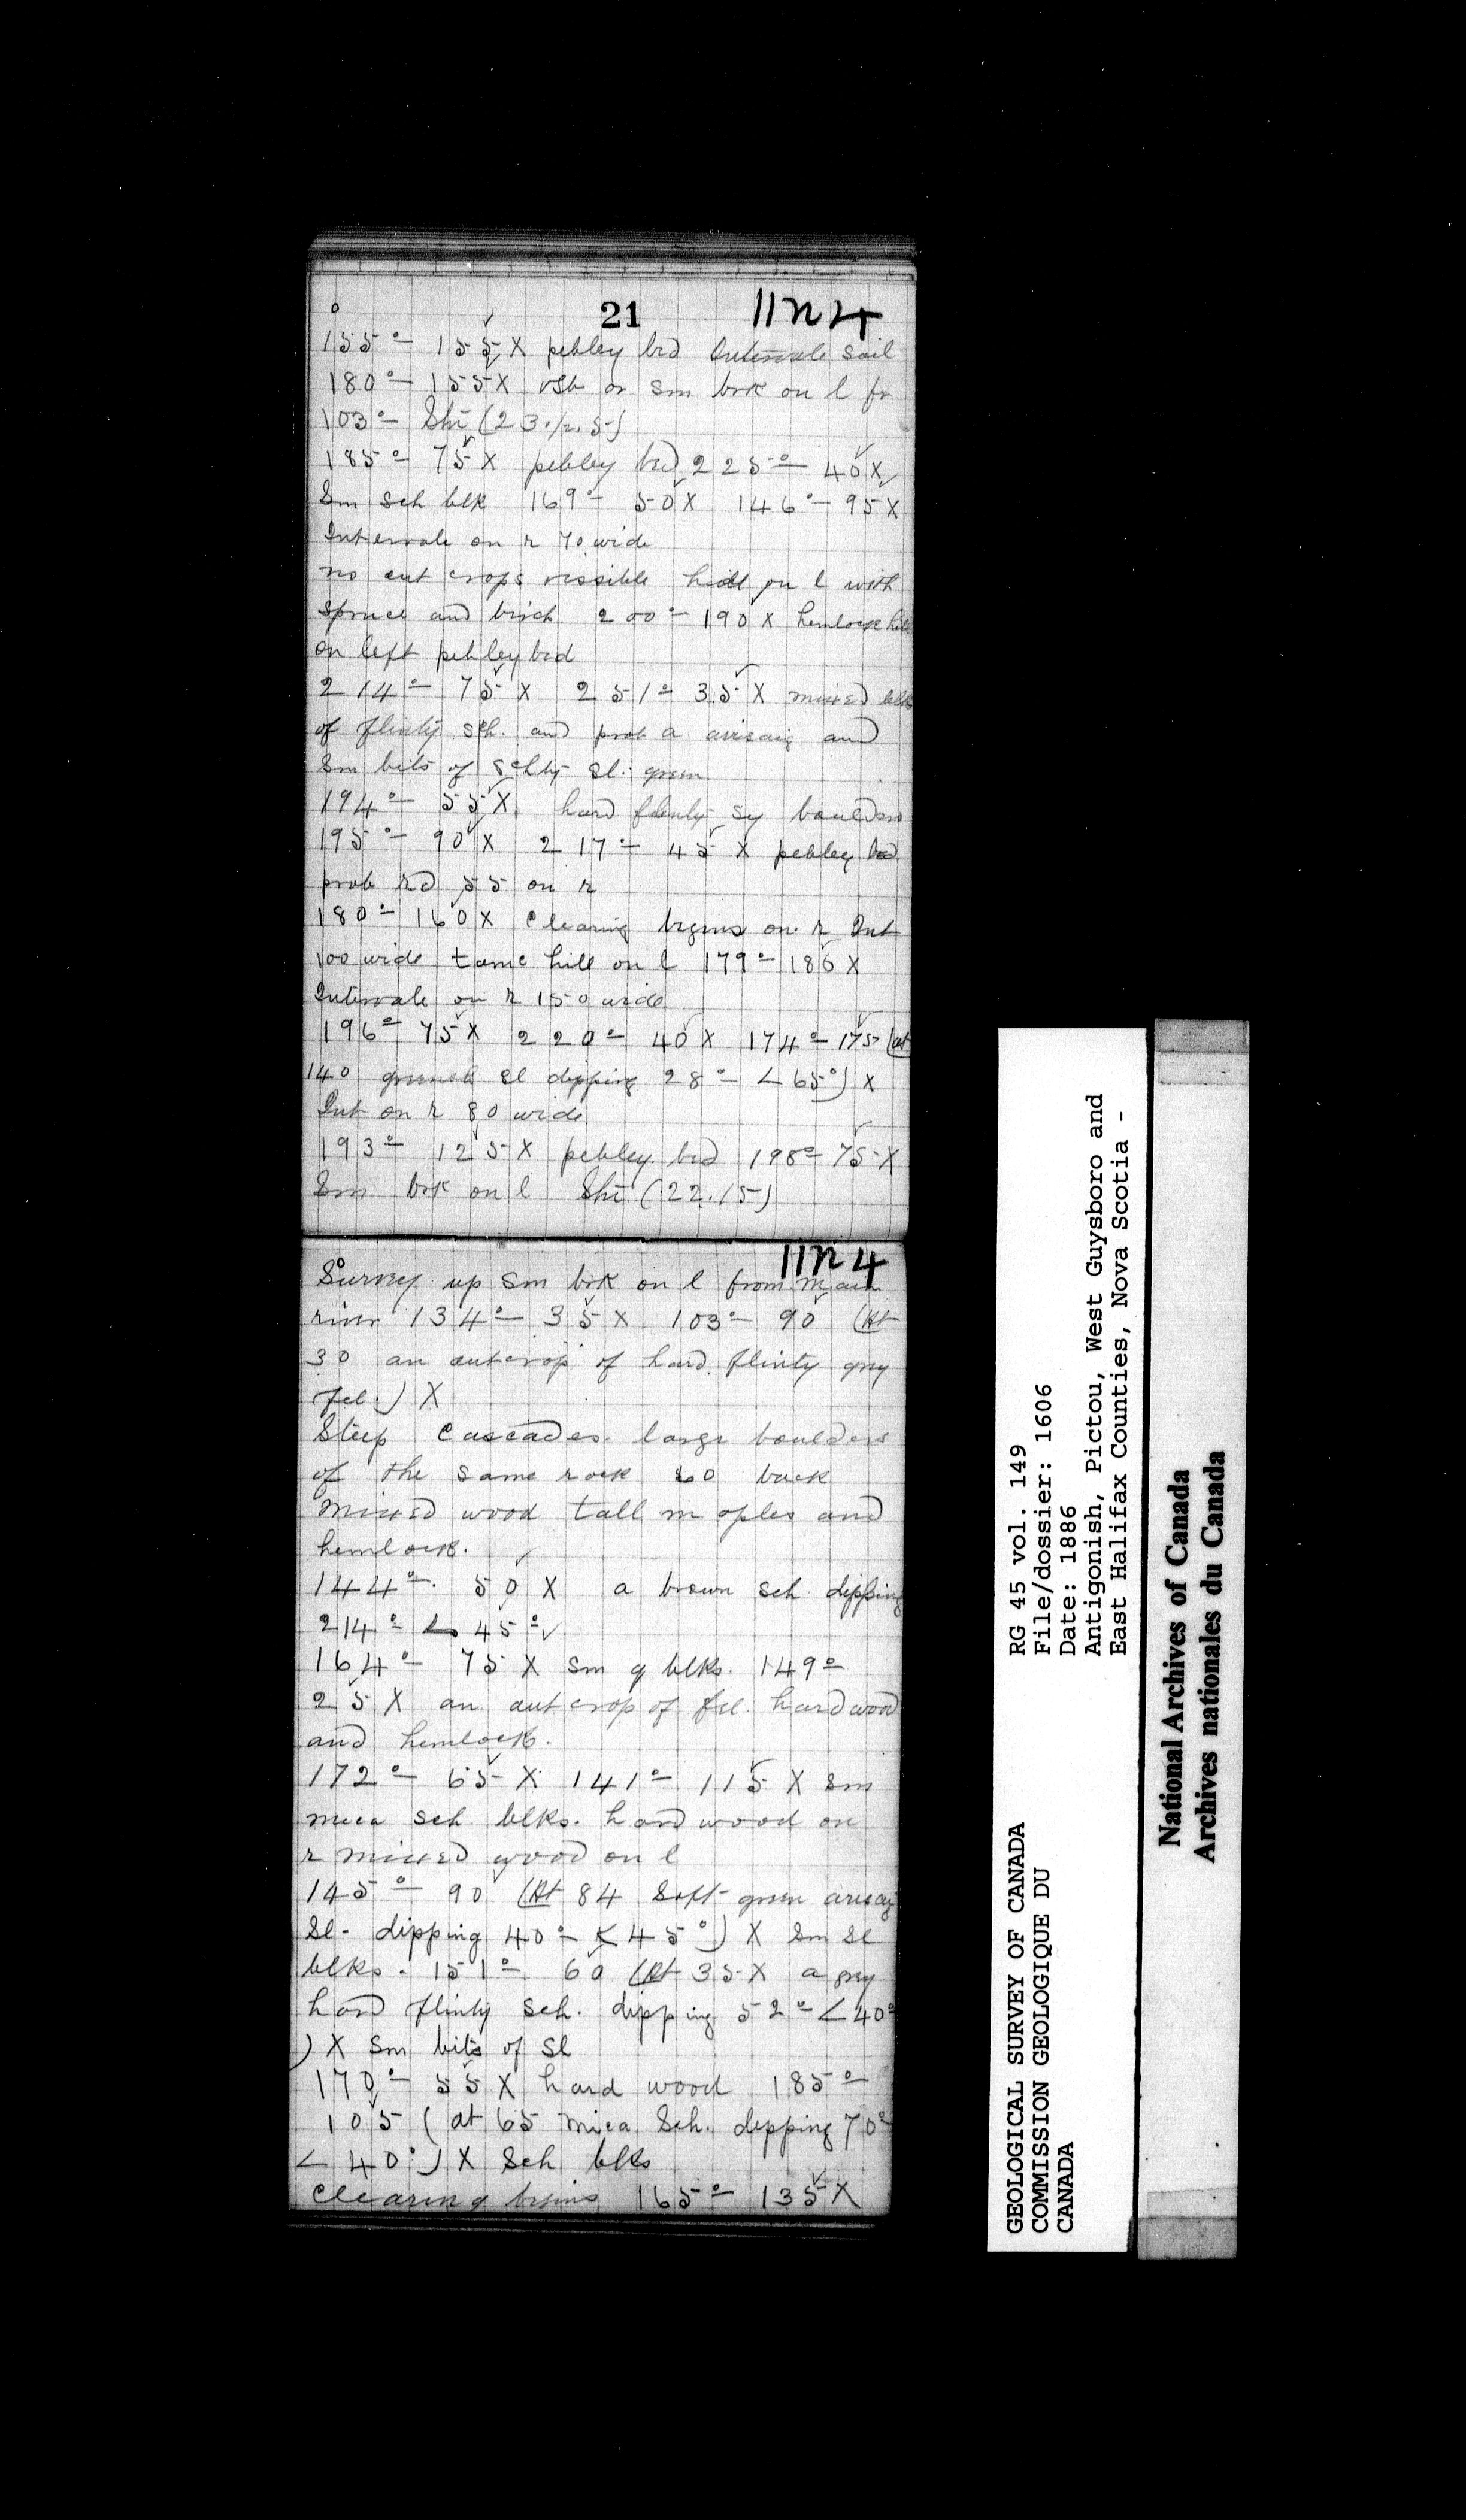 21 11n4
155°- 155 X pebley bed Intervale soil
180°- 155 X on sm brk on l fr
103°- Shī (23./2.5)
185°- 75 X pebley bed 225°- 40 X
Sm sch blk 169°- 50 X 146°- 95 X
Intervale on r 70 wide
no out crops vissible hill on l with
spruce and birch 200°- 190 X hemlock hill
on left pebley bed
214°- 75 X 251°- 35 X mixed blks
of flinty sch. and prob a arisaig and
Sm bits of schty sl. green
194°- 55 X hard flinty sy boulders
195°- 90 X 217°- 45 X pebley bed
prob rd 55 on r
180°- 160 X clearing begins on r Int
100 wide tame hill on l 179°- 186 X
Intervale on r 150 wide
196°- 75 X 220°- 40 X 174°- 175 (at
140 greenish sl dipping 28°- < 65°) X
Int on r 80 wide
193°- 125 X pebley bed 198°- 75 X
Sm brk on l Shī (22.15)
11n4
Survey up sm brk on l from main
river 134°- 35 X 103°- 90 (At
30 an outcrop of hard flinty grey
fel.) X
Steep cascades. large boulders
of the same rock 60 back
mixed wood tall maples and
hemlock.
144°- 50 X a brown sch dipping
214°- < 45°
164°- 75 X sm q blks. 149°-
25 X an out crop of fel. hard wood
and hemlock.
172°- 65 X 141°- 115 X sm
mica sch blks. hard wood on
r mixed wood on l
145°- 90 (At 84 Soft green arisaig
Sl- dipping 40°- < 45°) X Sm Sl
blks. 151°- 60 (At 35 X a grey
hard flinty sch. dipping 52°- < 40°
) X Sm bits of Sl
170°- 55 X hard wood 185°-
105 (at 65 mica Sch. dipping 70°
< 40°) X Sch blks
clearing begins 165°- 135 X
GEOLOGICAL SURVEY OF CANADA
COMMISSION GEOLOGIQUE DU
CANADA
RG 45 vol. 149
File/dossier: 1606
Date: 1886
Antigonish, Pictou, West Guysboro and
East Halifax Counties, Nova Scotia -
National Archives of Canada
Archives nationales du Canada